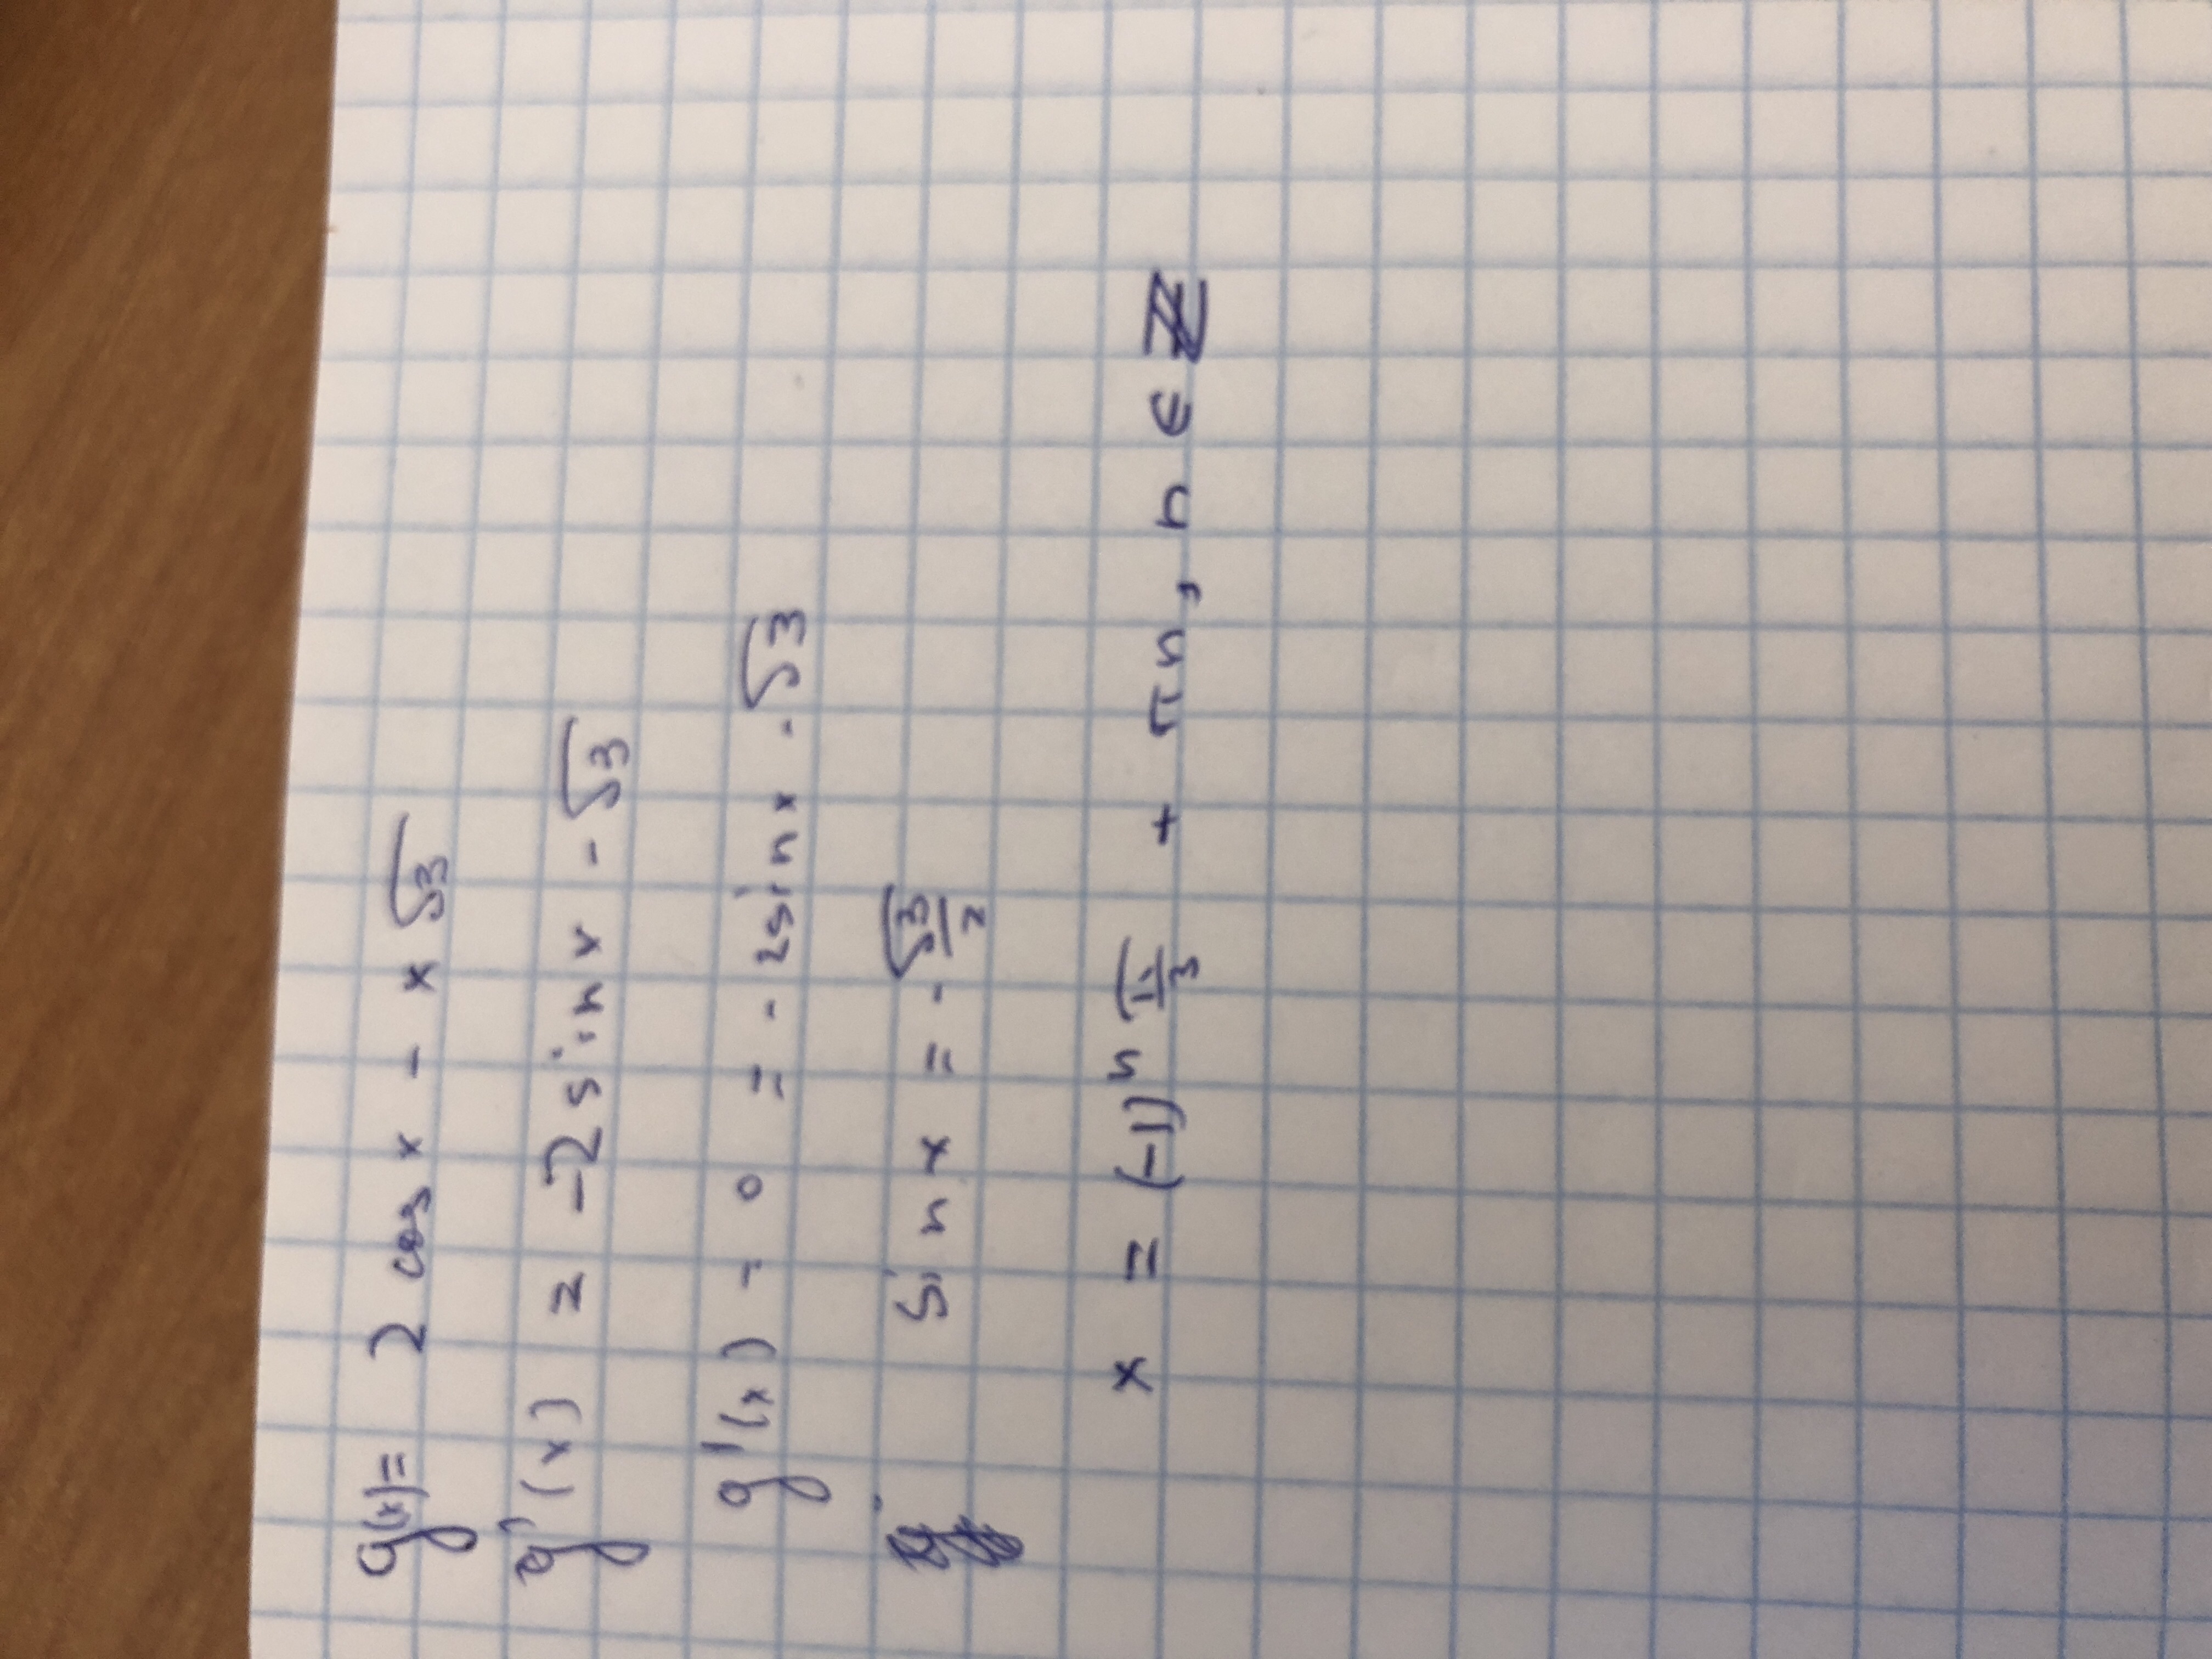 g(x)= 2 cos x - x √3
g'(x) = -2 sin x - √3
g'(x) - 0 = - 2sin x - √3
sin x = - √3/2
x = (-1)ⁿ π/3 + πn, n ∈ ℤ